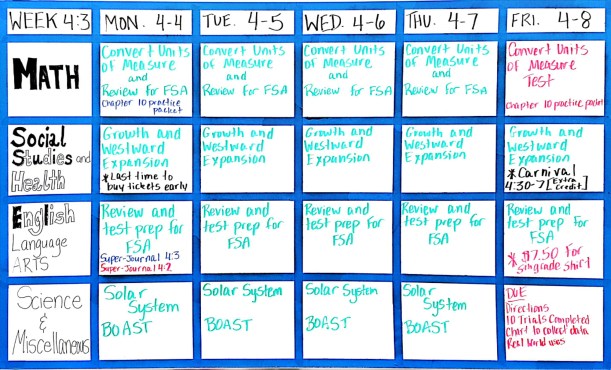 WEEK 4:3
MON. 4-4
TUE. 4-5
WED. 4-6
THU. 4-7
FRI. 4-8
MATH
Convert Units
of Measure
and
Review for FSA
Chapter 10 practice
packet
Convert Units
of Measure
and
Review for FSA
Convert Units
of Measure
and
Review for FSA
Convert Units
of Measure
and
Review for FSA
Convert Units
of Measure
Test
Chapter 10 practice packet
Social
Studies and
Health
Growth and
Westward
Expansion
*Last time to
buy tickets early
Growth and
Westward
Expansion
Growth and
Westward
Expansion
Growth and
Westward
Expansion
Growth and
Westward
Expansion
*Carnival
4:30-7 [Extra
Credit]
English
Language
ARTS
Review and
test prep for
FSA
Super-Journal 4:3
Super-Journal 4:2
Review and
test prep for
FSA
Review and
test prep for
FSA
Review and
test prep for
FSA
Review and
test prep for
FSA
* $7.50 for
shirt
Science
&
Miscellaneous
Solar
System
BOAST
Solar System
BOAST
Solar System
BOAST
Solar
System
BOAST
DUE
Directions
10 Trials Completed
Chart to collect data
Real World uses